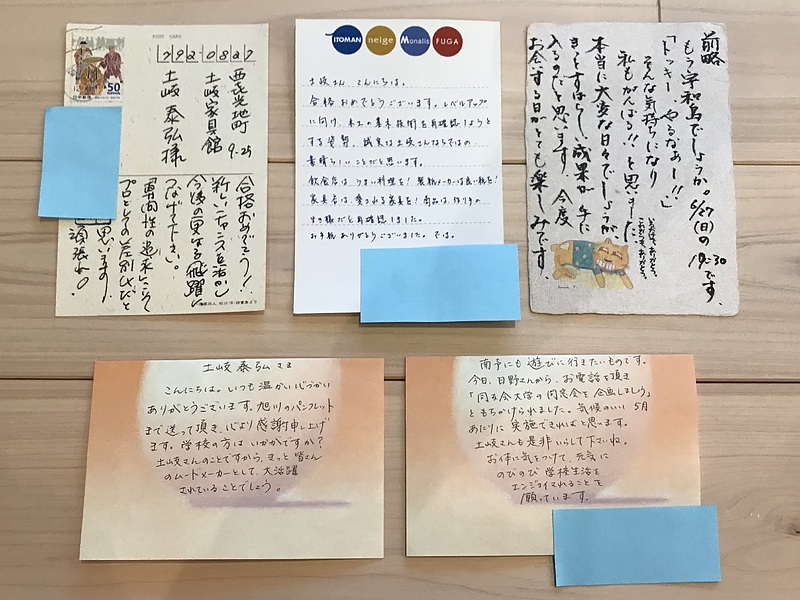 POST CARD
792-0827
西喜光地町 9-25
土岐家具館
土岐 泰弘様
50
NIPPON
日本郵便
合格おめでとう!
新しいニュアンスを活かし
今後の更なる飛躍に
つなげて下さい。
専門性の追求こそ
プロとしての差別化だと
思います!
頑張れ!
ITOMAN neige Monalis FUGA
土岐さん こんにちは。
合格おめでとうございます。レベルアップ
に向け、木工の基本技術を再確認しようと
する姿勢、誠実な土岐さんならではの
素晴らしいことだと思います。
飲食店は、うまい料理を! 製靴メーカーは良い靴を!
家具店は、愛される家具を! 商品は、作り手の
生き様だと再確認しました。
お手紙ありがとうございました。では。
前略
もう宇和島でしょうか。6/27(日)の19:30です。
「トッキー やるなぁー!!」
そんな気持ちになり
私もがんばる!!と思いました。
本当に大変な日々でしょうが、
きっとすばらしい成果が手に
入るのだと思います。今度
お会いする日がとても楽しみです。
いただけて、ありがとう。
これからって、ありがとう。
土岐泰弘さま
こんにちは。いつも温かい心づかい
ありがとうございます。旭川のパンフレット
まで送って頂き、心より感謝申し上げ
ます。学校の方はいかがですか?
土岐さんのことですから、きっと皆さん
のムードメーカーとして、大活躍
されていることでしょう。
南予にも遊びに行きたいものです。
今日、日野さんから、お電話を頂き
「同友会大学の同窓会を企画しましょう」
ともちかけられました。気候のいい5月
あたりに実施できればと思います。
土岐さんも是非いらして下さいね。
お体に気をつけて、元気に
のびのび学校生活を
エンジョイされることを
願っています。